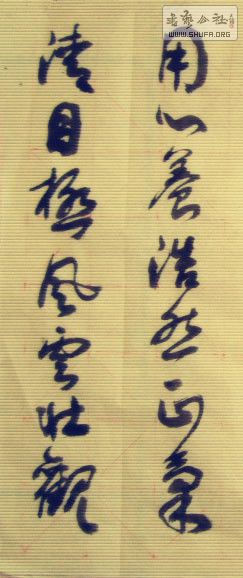 用心養浩然正氣
清目極風雲壯觀
書藝公社
WWW.SHUFA.ORG